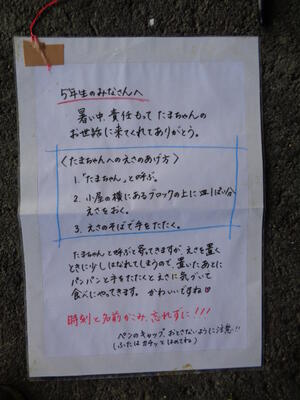 5年生のみなさんへ
暑い中、責任もって たまちゃんの
お世話に来てくれてありがとう。
〈たまちゃんへのえさのあげ方〉
1. 「たまちゃん。」と呼ぶ。
2. 小屋の横にあるブロックの上に皿1ぱい分
えさをおく。
3. えさのそばで手をたたく。
たまちゃんと呼ぶと寄ってきますが えさを置く
ときに少しはなれてしまうので、置いたあとに
パンパンと手をたたくと えさに気づいて
食べにやってきます。 かわいいですね
時刻と名前がこみ、忘れずに!!!
ペンのキャップ、おとさないように注意!!
(ふたはカチッとはめてね)